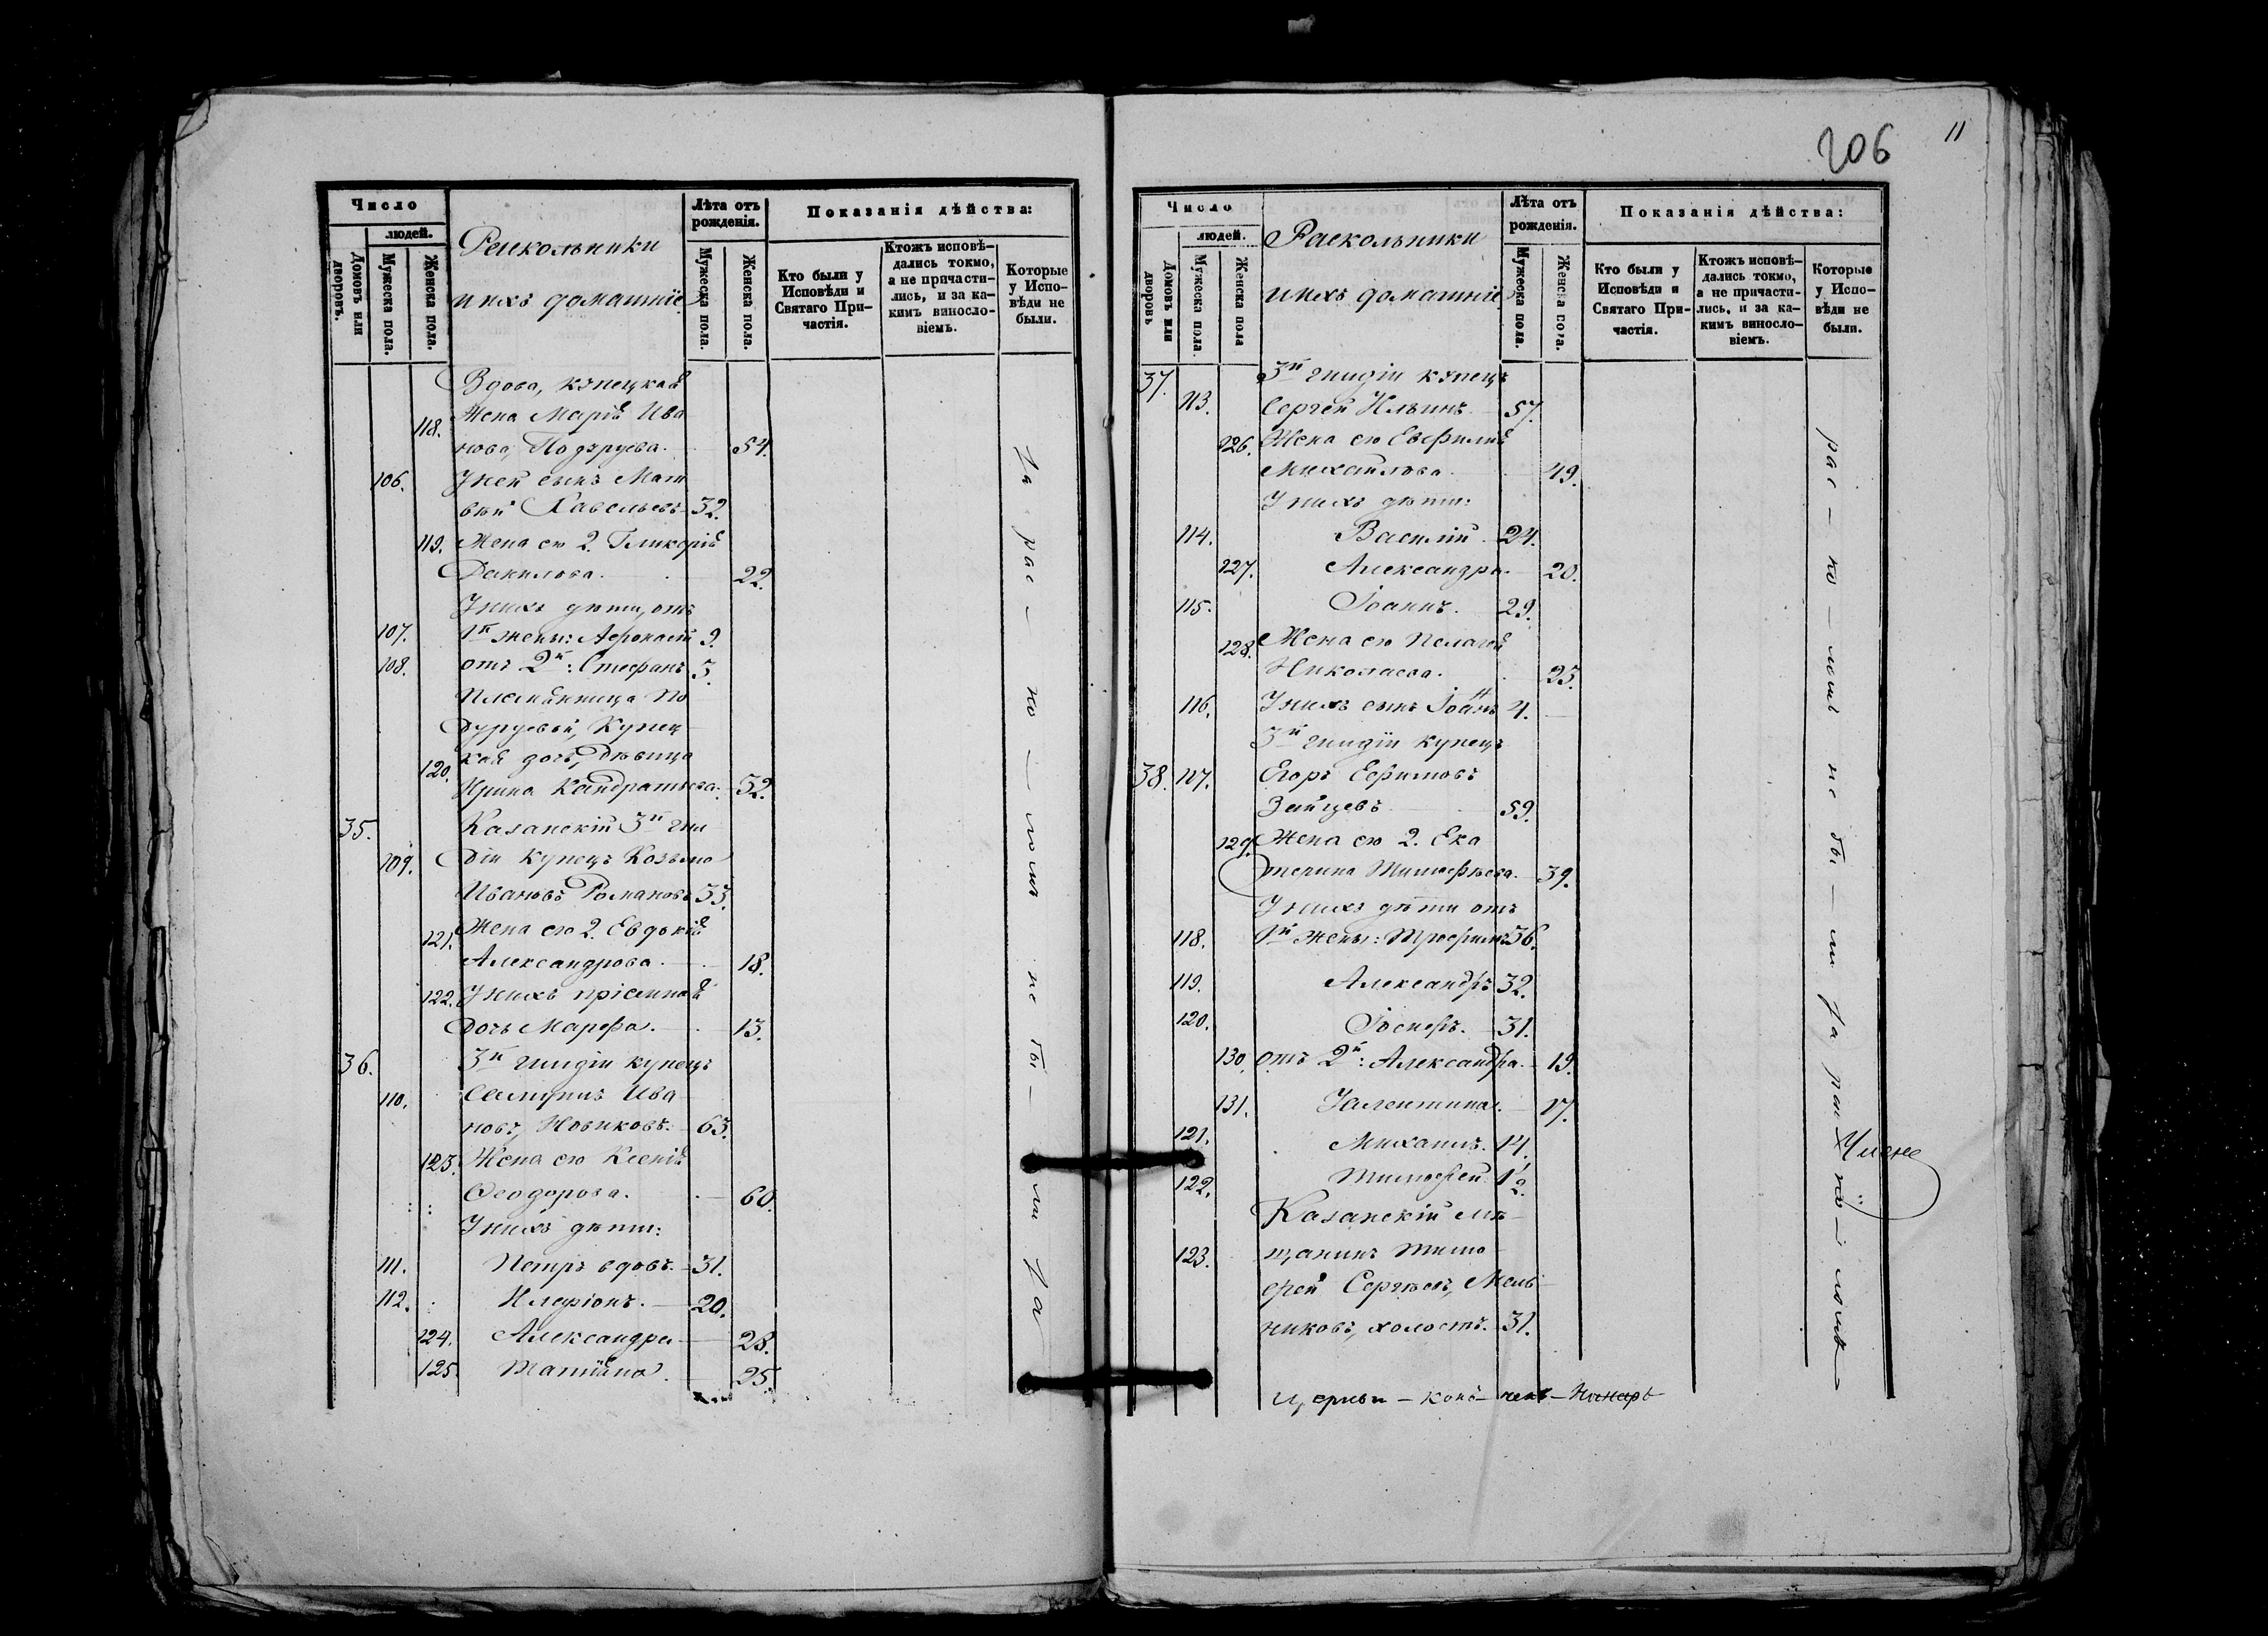 Число
людей.
Домовъ или дворовъ.
Мужеска пола.
Женска пола.
Раскольники
и ихъ домашніе
Лѣта отъ рожденія.
Мужеска пола.
Женска пола.
Показанія дѣйства:
Кто были у Исповѣди и Святаго Причастія.
Ктожъ исповѣ-
дались токмо,
а не причасти-
лись, и за ка-
кимъ винosло-
віемъ.
Которые
у Испо-
вѣди не
были.
Вдова, купецкая
118. Жена Марія Ива
нова, Подуруева. 54.
106. У ней сынъ Мат
вѣй Савельевъ 32.
119. Жена его 2. Гликерія
Данилова. 22.
У нихъ дѣти, отъ
107. 1й жены: Афонасій 9.
108. отъ 2й: Стефанъ 3.
Племянница По
дуруевой, Купец
120. кая дочь, Дѣвица
Ирина Кандратьева. 52.
35. Казанскій 3й гил
109. діи Купецъ Козьма
Ивановъ Романовъ 33.
121. Жена его 2. Евдокія
Александрова. 18.
122. У нихъ пріемная
Дочь Марфа. 13.
36. 3й гильдіи купецъ
110. Ива
новъ, Новиковъ. 63.
123. Жена его Ксенія
Ѳеодорова. 60.
У нихъ дѣти:
111. Петръ вдовъ. 31.
112. Иларіонъ. 20.
124. Александра 28.
125. Татіяна. 25.
За рас – ко – ломъ не бы – ли За
206
11
Число
людей.
Домовъ или дворовъ
Мужеска пола
Женска пола
Раскольники
и ихъ домашніе
Лѣта отъ рожденія.
Мужеска пола.
Женска пола.
Показанія дѣйства:
Кто были у
Исповѣди и
Святаго При-
частія.
Ктожъ исповѣ-
дались токмо,
а не причасти-
лись, и за ка-
кимъ винosло-
віемъ.
Которые
у Испо-
вѣди не
были.
37. 3й гилдіи купецъ
113. Сергей Ильинъ 57.
126. Жена его Евфимія
Михайлова 49.
У нихъ дѣти:
114. Василій 24.
127. Александра 20.
115. Іоаннъ. 29.
128. Жена его Пелагея
Николаева. 23.
116. У нихъ сынъ Іоанъ 4.
3й гилдіи купецъ
38. 117. Егоръ Ефимовъ
Зайцевъ 59.
129. Жена его 2. Ека
терина Тимофѣева. 39.
У нихъ дѣти отъ
118. 1й жены: Трофимъ 36.
119. Александръ 32.
120. Іосифъ. 31.
130. отъ 2й: Александра. 19.
131. Уалентина. 17.
121. Михаилъ. 14.
122. Тимофей. 1/2.
Казанскій мѣ
123. щанинъ Тимо
фей Сергѣевъ, Мель
никовъ, холостъ. 31.
рас – ко – ломъ не бы – ли За рас – ко – ломъ
Церкви –